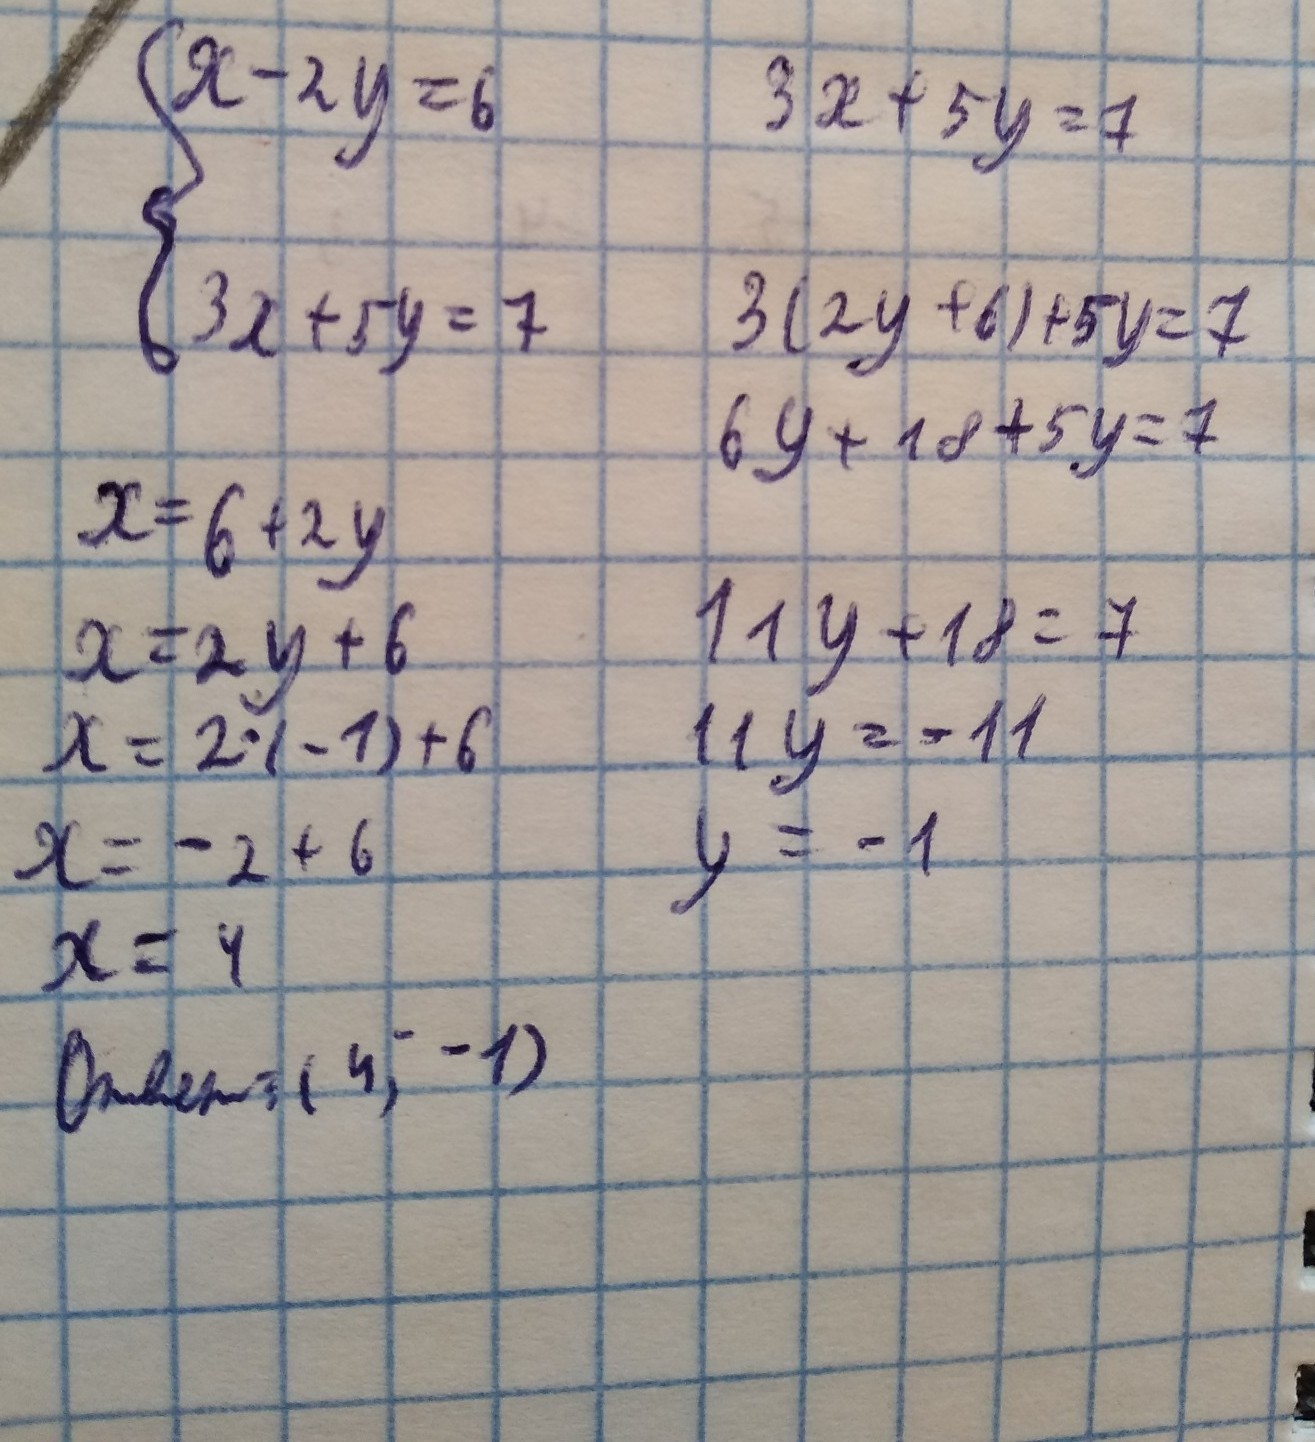 x - 2y = 6
3x + 5y = 7
x = 6 + 2y
x = 2y + 6
x = 2·(-1) + 6
x = -2 + 6
x = 4
Ответ: (4; -1)
3x + 5y = 7
3(2y + 6) + 5y = 7
6y + 18 + 5y = 7
11y + 18 = 7
11y = -11
y = -1